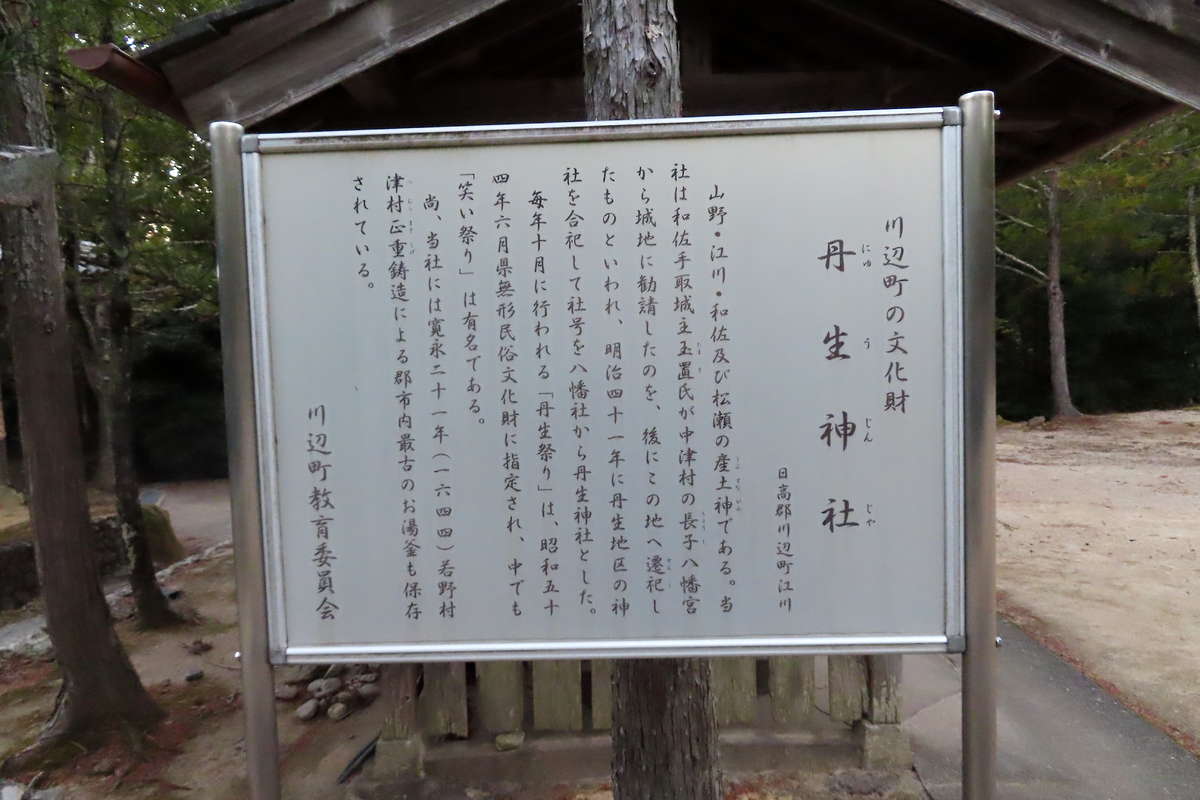 川辺町の文化財
丹生神社
にゅうじんじゃ
日高郡川辺町江川
山野・江川・和佐及び松瀬の産土神である。当
社は和佐手取城主玉置氏が中津村の長子八幡宮
から城地に勧請したのを、後にこの地へ遷祀し
たものといわれ、明治四十一年に丹生地区の神
社を合祀して社号を八幡社から丹生神社とした。
毎年十月に行われる「丹生祭り」は、昭和五十
四年六月県無形民俗文化財に指定され、中でも
「笑い祭り」は有名である。
尚、当社には寛永二十一年（一六四四）若野村
津村正重鋳造による郡市内最古のお湯釜も保存
されている。
川辺町教育委員会